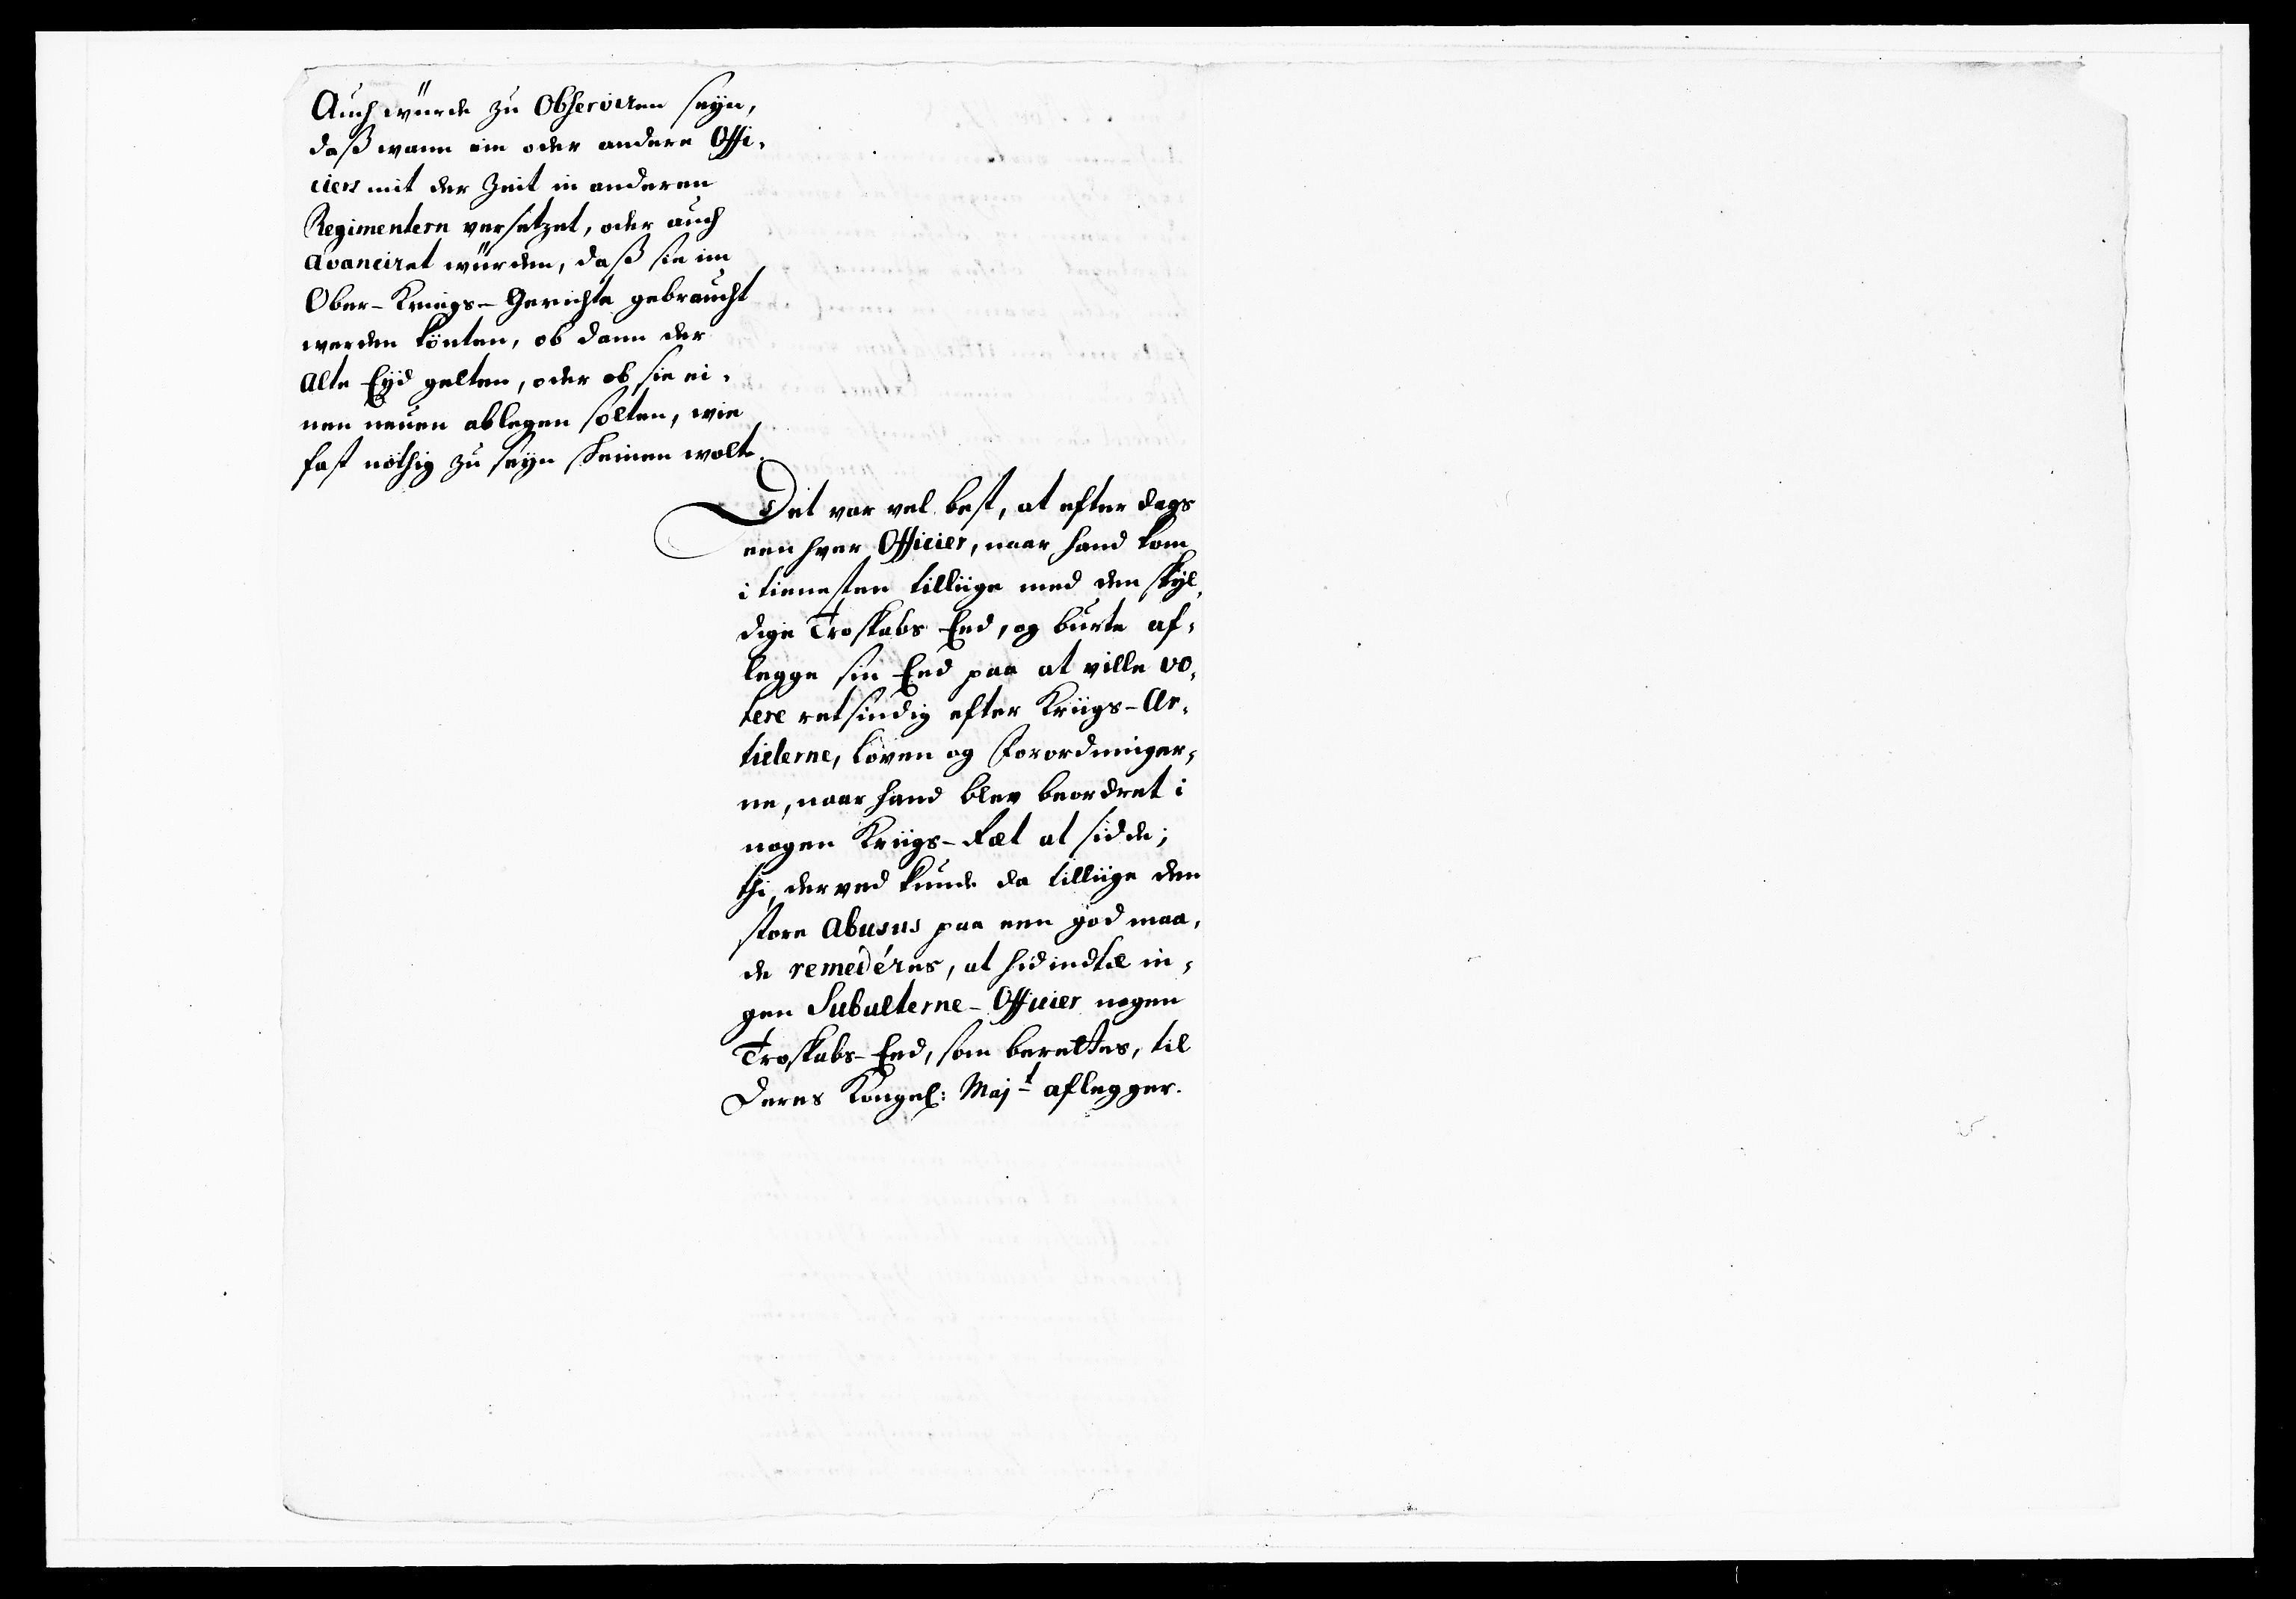 Auch würde zu Observiren seyn,
daß wann ein oder andere Offi-
ciers mit der Zeit in anderen
Regimentern versetzet, oder auch
avanciret würden, daß sie im
Ober-Kriegs-Gerichte gebraucht
werden könten, ob dann der
alte Eyd gelten, oder ob sie ei-
nen neuen ablegen solten, wie
fast nöthig zu seyn scheinen wolte.
Det var vel best, at efter dags
een hver Officier, naar hand kom
i tienesten tilliige med den skyl-
dige Troskabs Eed, og burte af-
legge sin Eed paa at ville vo-
tere retsindig efter Kriigs-Ar-
ticlerne, loven og Forordninger-
ne, naar hand blev beordret i
nogen Kriigs-Ræt at sidde;
thi derved kunde da tilliige den
store Abusus paa een god maa-
de remedéres, at hidindtil in-
gen Subalterne-Officier nogen
Troskabs-Eed, som berettes, til
Deres Kongel: Majt aflegger.